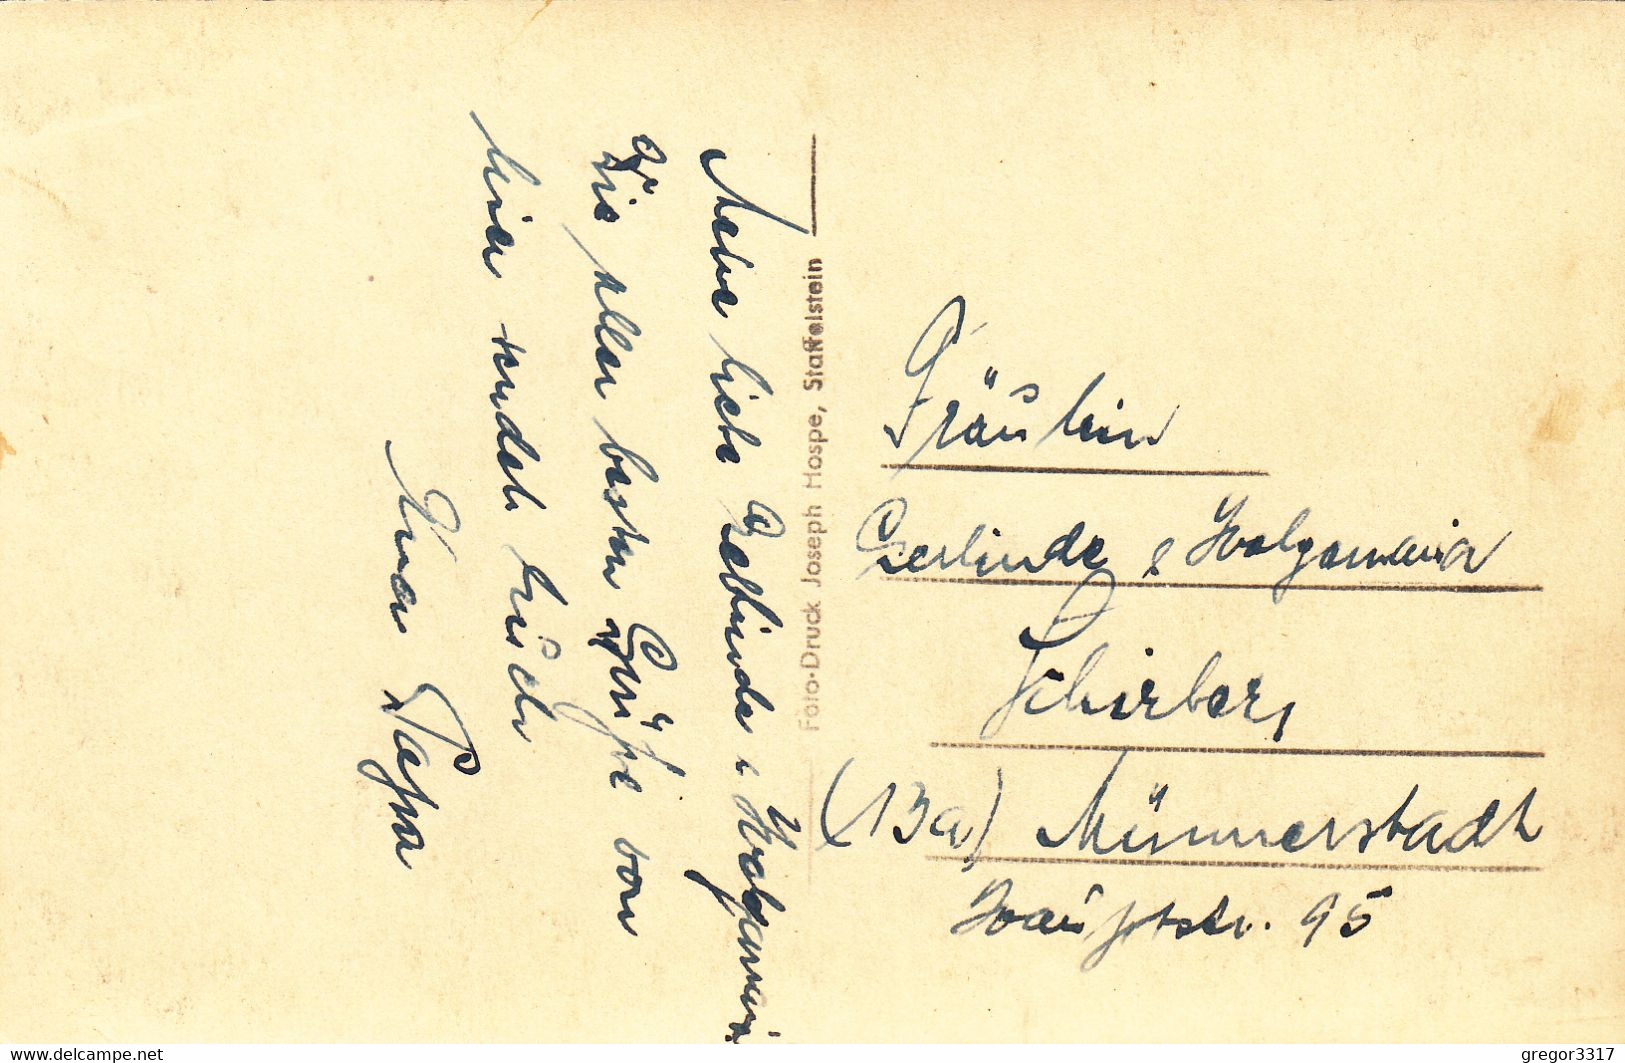 Meine liebe Gerlinde u Helgamaria
Die aller besten Grüße von
hier sendet Euch
Euer Papa
Foto-Druck Joseph Hospe, Staffelstein
Fräulein
Gerlinde & Helgamaria
Schirber
(13a) Münnerstadt
Hauptstr. 95
www.delcampe.net
gregor3317